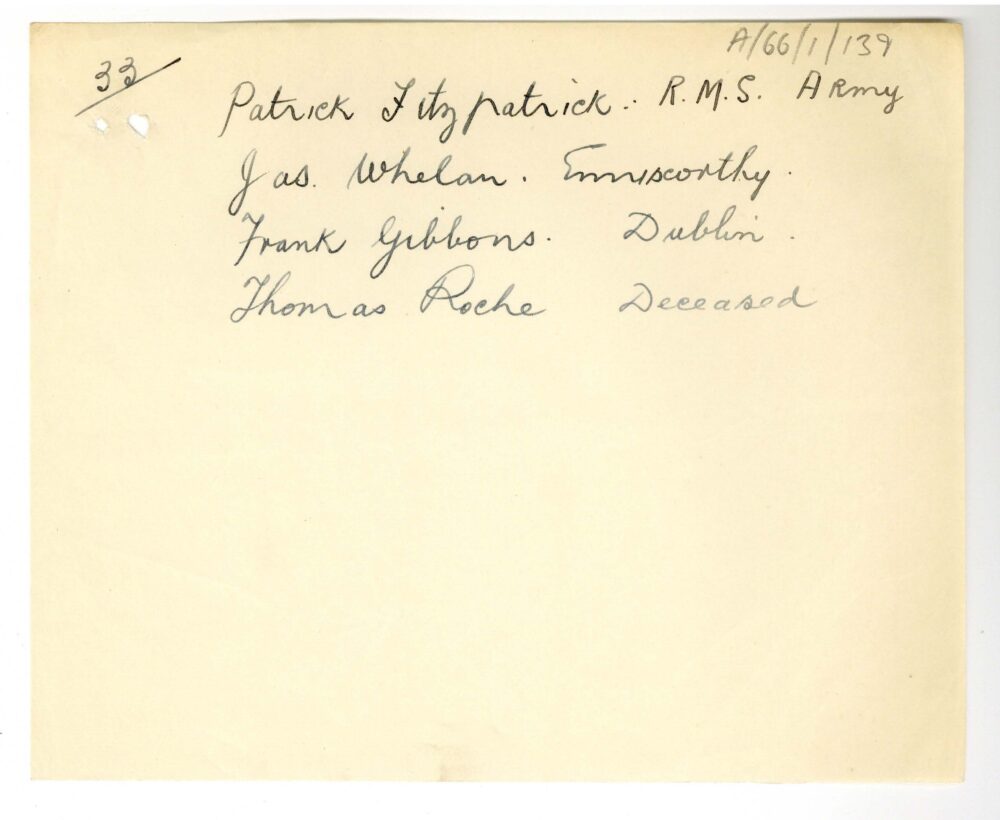 A/66/1/139
33
Patrick Fitzpatrick.. R.M.S. Army
Jas. Whelan. Enniscorthy.
Frank Gibbons. Dublin.
Thomas Roche Deceased